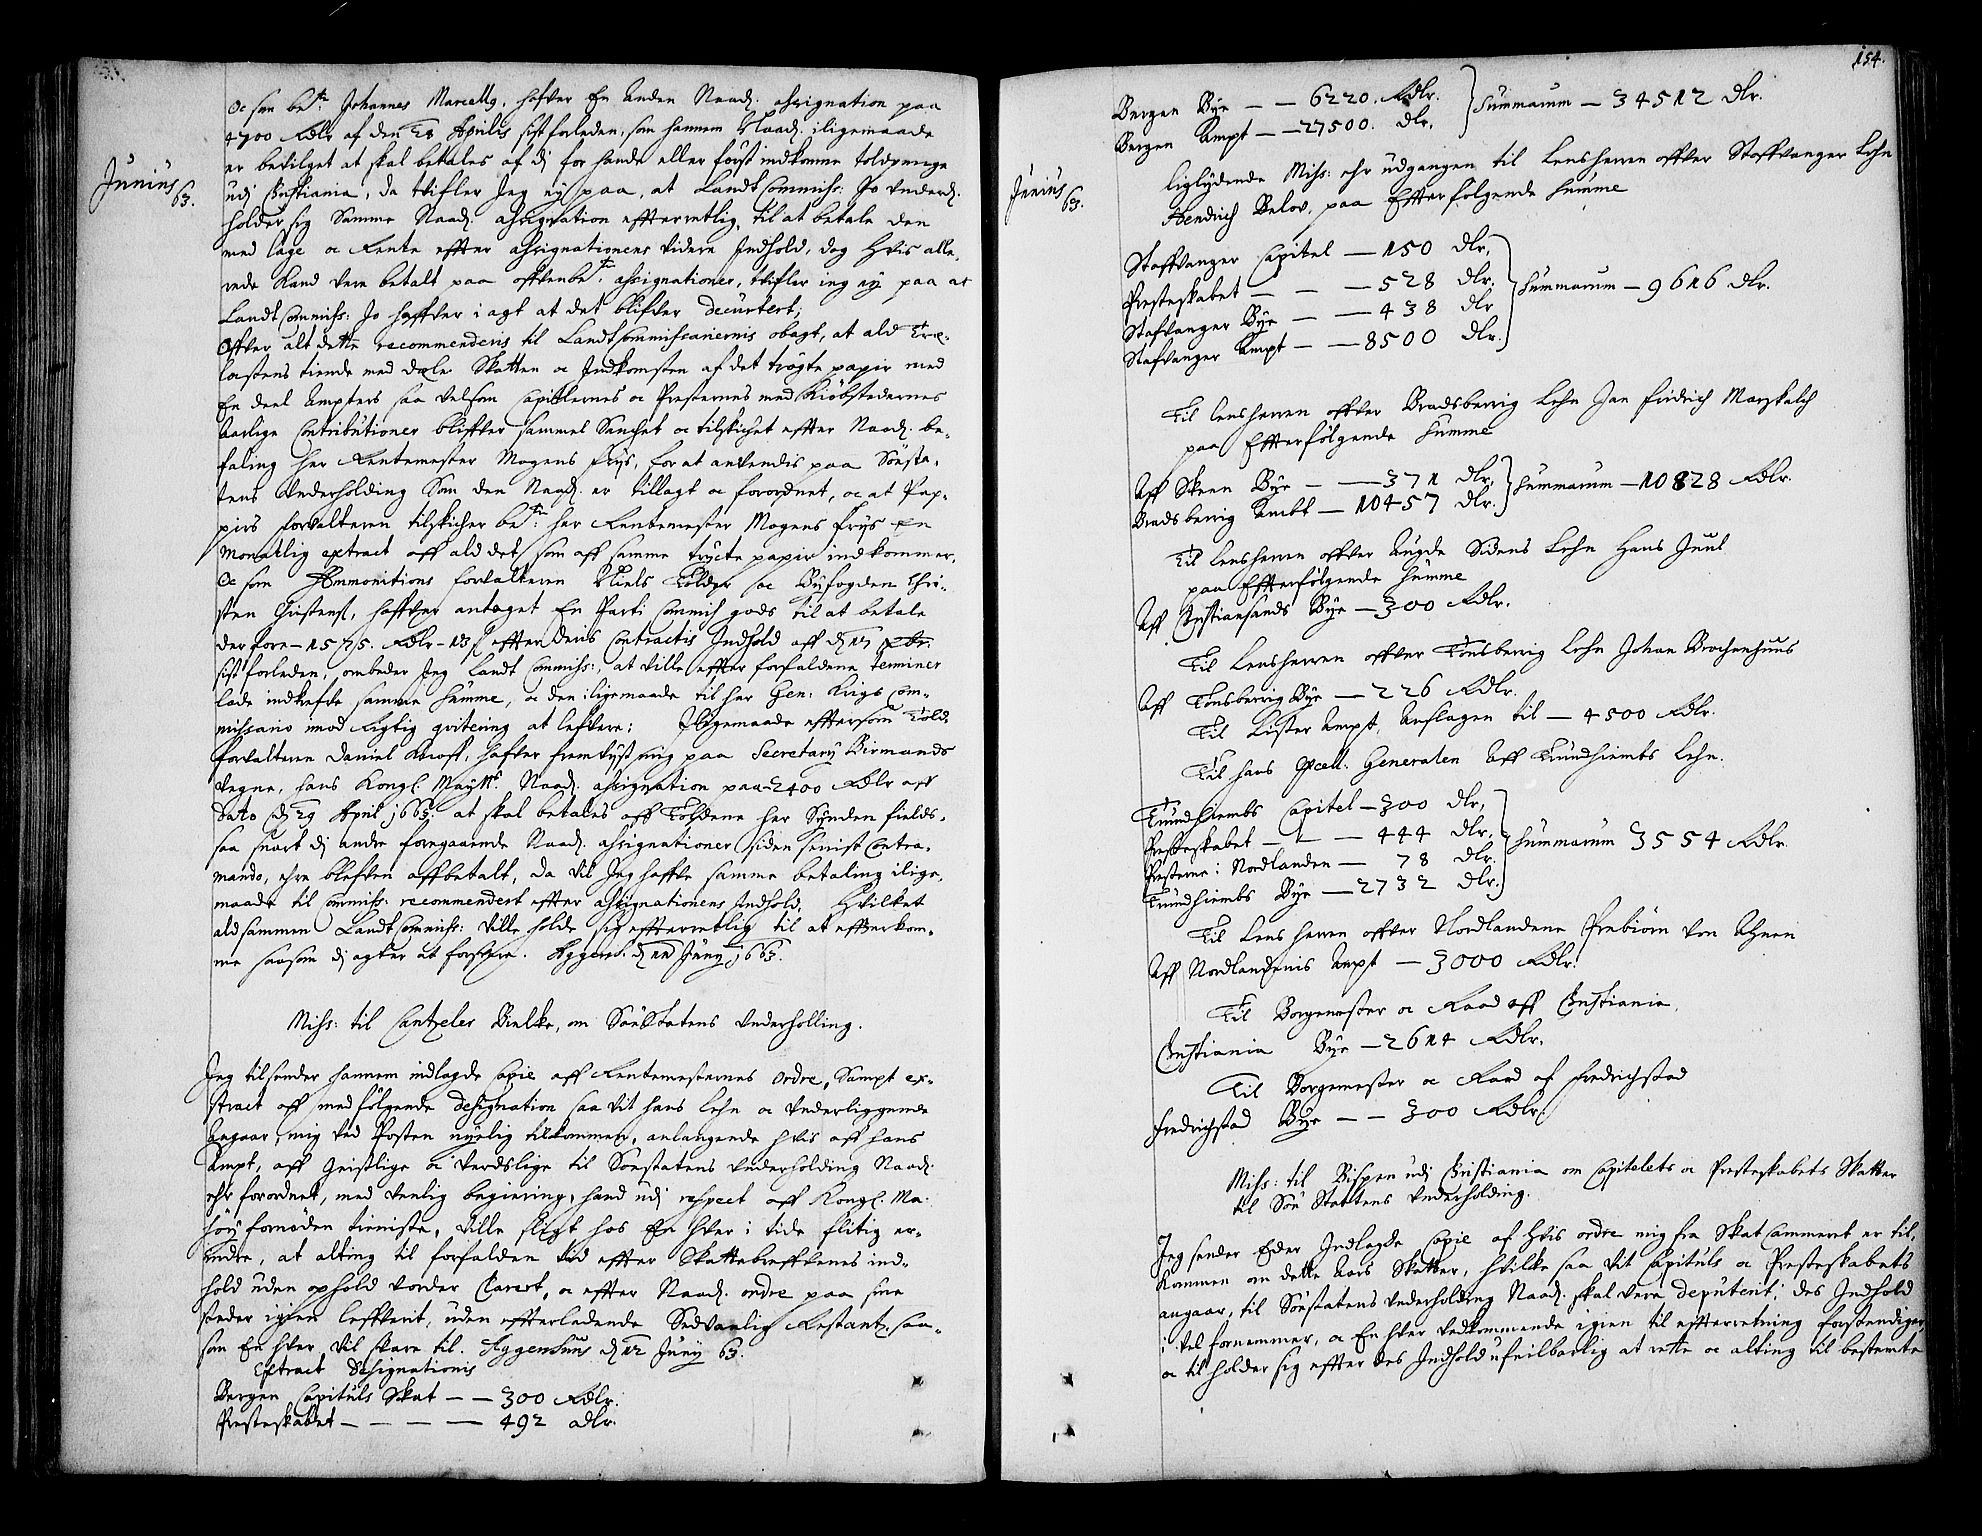 Junius
63.
Oc som bete Johannes Marcelly, hafver En Anden Naad. assignation paa
4700 Rdlr af den 28 Aprilis sistforleden, som hannem Naad. iligemaade
er bevilget at skal betales af dj for hande eller först indkomne toldpenge
udj Christiania, da tvifler Jeg ey paa, at Landt Commiss: Jo Underd.
holder sig Samme Naad. Assignation effterretlig, til at betale den
med lage oc Rente effter assignationens videre Indhold, dog hvis alle,
rede Kand vere betalt paa offvenbete assignationer, tvifler ieg ey paa at
Landt Commiss: Jo haffver i agt at det blifver decurtert;
Offver alt dette recommenderis til Landt Commissariernis obagt, at ald Træ-
lastens tiende med dæle Skatten oc Indkomsten af det trögte papir med
En deel Ampters saa velsom Capitlernes oc Presternes med Kiöbstedernes
Aarlige Contributioner blifver sammel Sanchet oc tilskichet effter Naad. be,
faling her Rentemester Mogens friis, for at anvendis paa Söesta,
tens Underholding Som den Naad. er tillagt oc forordnet, oc at Pap,
piirs forvalteren tilskicher bete: her Rentemester Mogens friis en
Monatlig extract aff ald det, som aff samme trycte papir indkommer,
Oc som Ammonitions forvalteren Niels Tolder oc Byfogden Chri,
sten Christens, haffver antaget En Parti Commis gods til at betale
derfore - 1575. Rdlr - 13 s effter deris Contractis Indhold aff d 17
sistforleden, ombeder Jeg Landt Commiss:, at ville effter forfaldene terminer
lade indkrefve samme summe, oc den iligemaade til her Gen: Krigs Com-
missario imod Rigtig qvitering at lefvere; Iligemaade effttersom Told,
forvalteren Daniel Knoff, hafver fremviist mig paa Secretary Birmands
vegne, hans Kongl. Maytts. Naad. assignation paa 2400 Rdlr aff
dato d 29 April 1663. at skal betales aff Toldene her Synden fields,
saa snart dj andre foregaaende Naad. assignationer siden seniste Contra,
mando, ehre bleffven affbetalt, da vil Jeg haffve samme betaling ilige,
maade til Commiss: recommendert effter assignationens Indhold. Hvilket
altsammen Landt Commiss: ville holde sig effterretlig til at effterkom,
me saasom dj agter at forsvare. Aggers. d 12 Juny 1663.
Miss: til Cantzeler Bielke, om Söe Statens Underholling.
Jeg tilsender hannem indlagde Copie aff Rentemesternes Ordre, Sampt ex,
stract aff medfölgende designation saa vit hans Lehn oc Underliggende
Angaar, mig ved Posten nyelig tilkommen, anlangende hvis aff hans
Ampt, aff Geistlige oc Verdslige til Söestatens Underholding Naad.
ehr forordnet, med venlig begiering, hand udj respect aff Kongl. Ma.
höy fornöden tieniste, ville sligt hos En hver i tide flitig er,
indre, at alting til forfalden tid effter Skattebreffvenes ind,
hold uden ophold vorder Clarert, oc effter Naad. ordre paa sine
steder igien leffverit, uden effterladende Sedvanlig Restantz, saa,
som En hver vil svare til. Aggershuus d 12 Juny 63.
Extract Designationis
Bergen Capituls Skat - - 300 Rdlr.
Presteskabet - - - - 492 dlr.
154.
Junius
63.
Bergen Bye - - 6220. Rdlr.
Bergen Ampt - - 27500. dlr. Summarum - 34512 dlr.
liglydende Miss: ehr udgangen til Lensherren offver Staffvanger Lehn
Hendrich Below, paa Effterfölgende Summe
Staffvanger Capitel - 150 dlr,
Presteskabet - - - 528 dlr,
Stafvanger Bye - - 438 dlr
Stafvanger Ampt - - 8500 dlr. Summarum - 9616 dlr.
Til Lensherren offver Bradsberrig Lehn Jan fridrich Marschalch
paa Effterfölgende Summe
Aff Skeen Bye - - 371 dlr,
Bradsberrig Ambt - 10457 dlr. Summarum - 10828 Rdlr.
Til Lensherren offver Augde Sidens Lehn Hans Juul
paa Effterfölgende Summe
Aff Christiansands Bye - 300 Rdlr.
Til Lensherren offver Tönsberrig Lehn Johan Brochenhuus
Aff Tönsberrig Bye - 226 Rdlr.
Til Lister Ampt, Anslagen til - 4500 Rdlr.
Til hans Excell: Generalen Aff Trundhiembs Lehn.
Trundhiembs Capitel - 300 dlr,
Presteskabet - - - 444 dlr,
Presterne i Nordlanden - 78 dlr.
Trundhiembs Bye - 2732 dlr. Summarum 3554 Rdlr.
Til Lens herren offver Nordlandene Prebiörn von Ahnen
Aff Nordlandenis Ampt - 3000 Rdlr.
Til Borgemester oc Raad aff Christiania,
Christiania Bye - 2614 Rdlr.
Til Borgemester oc Raad af Fredrichstad
Fredrichstad Bye - - 300 Rdlr.
Miss: til Bispen udj Christiania om Capitelets oc Presteskabets Skatter
til Söe Stattens Underholding.
Jeg sender Eder Indlagde Copie af hvis ordre mig fra Skat Cammeret er til,
kommen om dette Aars Skatter, hvilke saa vit Capituls oc Presteskabets
angaar, til Söestatens Underholding Naad. skal vere deputerit; des Indhold
i vel fornemmer, oc En hver vedkommende igien til effterretning forstendiger,
oc til holder sig effter des Indhold ufeilbarlig at rette oc alting til bestemte